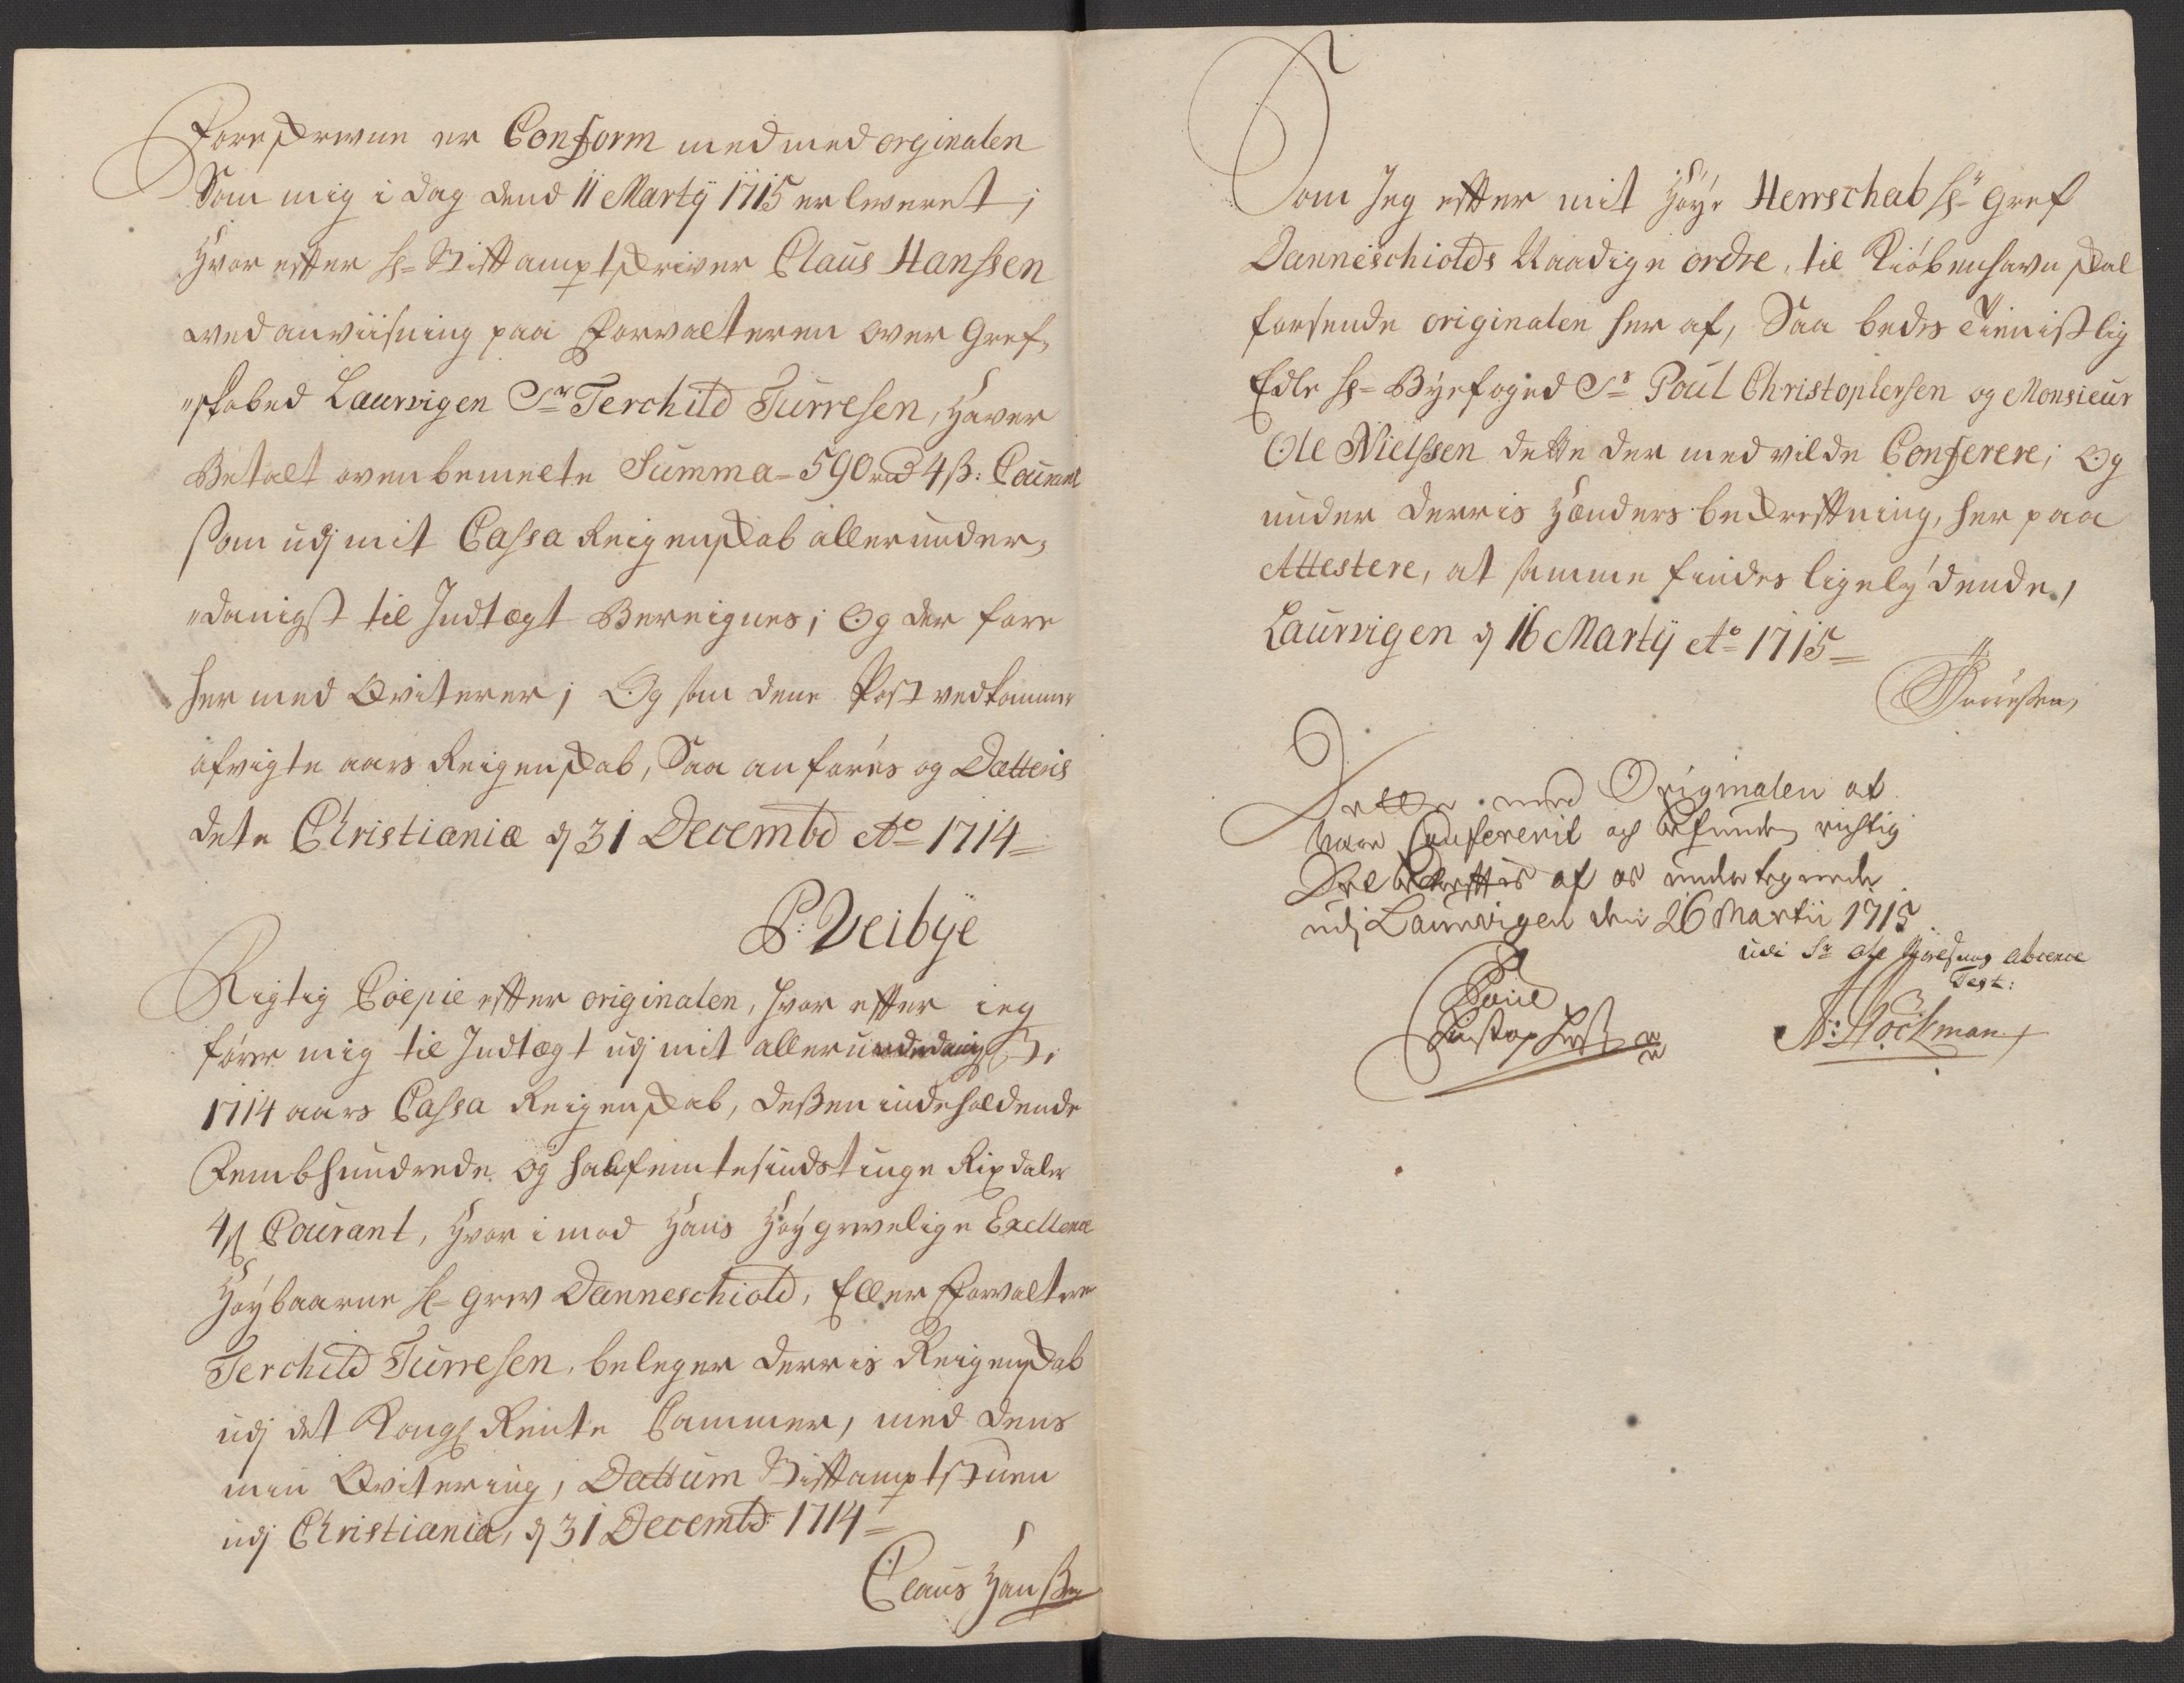 Foreskrevne er Conform med med orginalen
Som mig i dag dend 11 Martÿ 1715 er leveret;
Hvor efter Hr Stiftamptskriver Claus Hanssen
wed anviisning paa Forvalteren over Gref„
„skabed Laurvigen Sr Terchild Turresen, Haver
Betalt ovenbemelte Summa = 590 rd 4 ß: Courant
som udj mit Cassa Reigenskab allerunder„
„danigst til Indtægt Bereignes; Og der fore
her med Qviterer; Og som dene Post vedkommer
afvigte aars Reigenskab, Saa anføris og Datteris
dete Christianiæ d 31 Decembr Ao 1714
P: Veibÿe
Rigtig Copie efter originalen, hvor efter ieg
fører mig til Indtægt udj mit allerunderdanigst,
1714 aars Cassa Reigenskab, deßen indeholdende
Fembhundrede og halfemtesindstinge Rixdaler
4 ß Courant, Hvor imod Hans Høygrevelige Excellence
Høybaarne Hr Grev Danneschiold, Eller Forvalteren
Terchild Turresen, beleger derris Reigenskab
udj det Kongl Rente Cammer, med dens
min Qvitering, Dattum Stiftamptstuen
udj Christiania, d 31 Decembr 1714
Claus Hanßen
Som Jeg efter mit Høye Herrschab Hr Gref
Danneschiolds Naadige ordre, til Kiøbenhavn skal
forsende originalen her af, Saa bedes tienistlig
Edle Hr Byefoged Sr Poul Christophersen og Monsieur
Ole Nielssen dette der med vilde Conferere; Og
under derris Hænders bekreftning, her paa
Attestere, at samme findes ligelÿdende,
Laurvigen d 16 Martÿ Ao 1715
T Turresen,
Dette med Originalen at
være Confererit og befunden richtig
Det bekreftis af os undertegnede
udj Laurvigen den 26 Martii 1715
udi Sr Ole Nielsens absence
Test:
Poul
Christophersen
N: Höckman